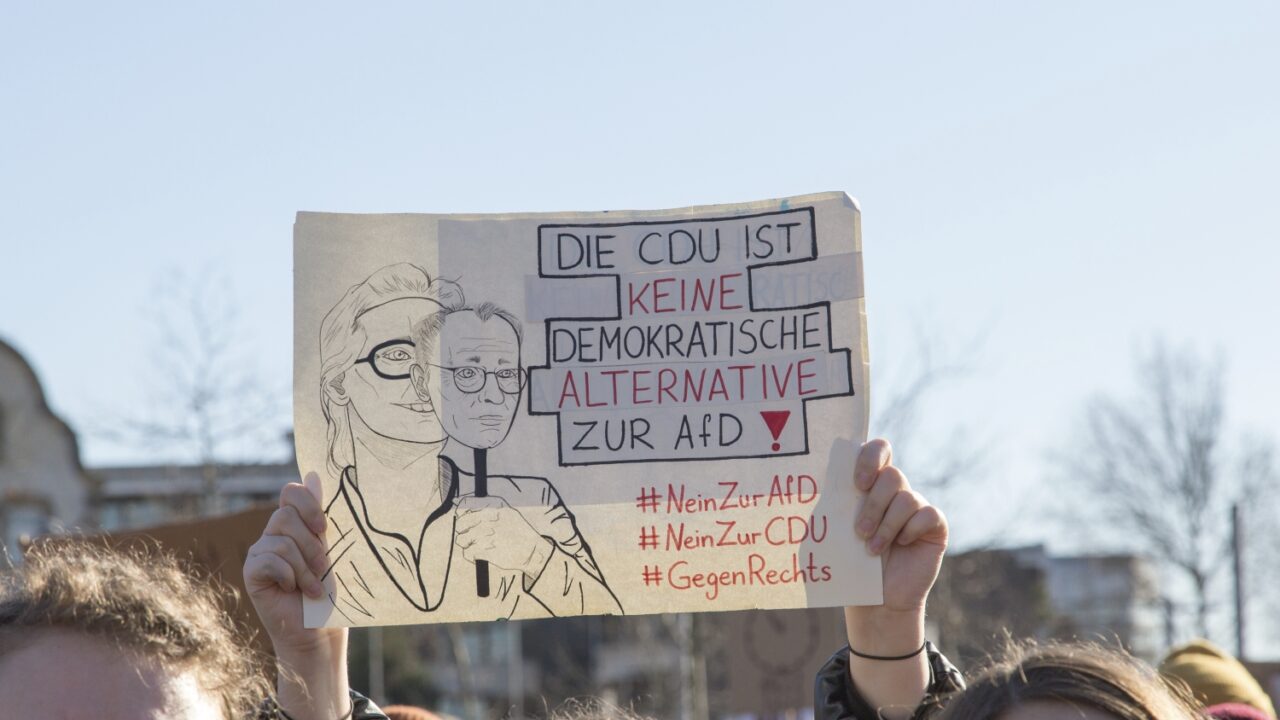 DIE CDU IST
KEINE
DEMOKRATISCHE
ALTERNATIVE
ZUR AfD !
#NeinZurAfD
#NeinZurCDU
#GegenRechts